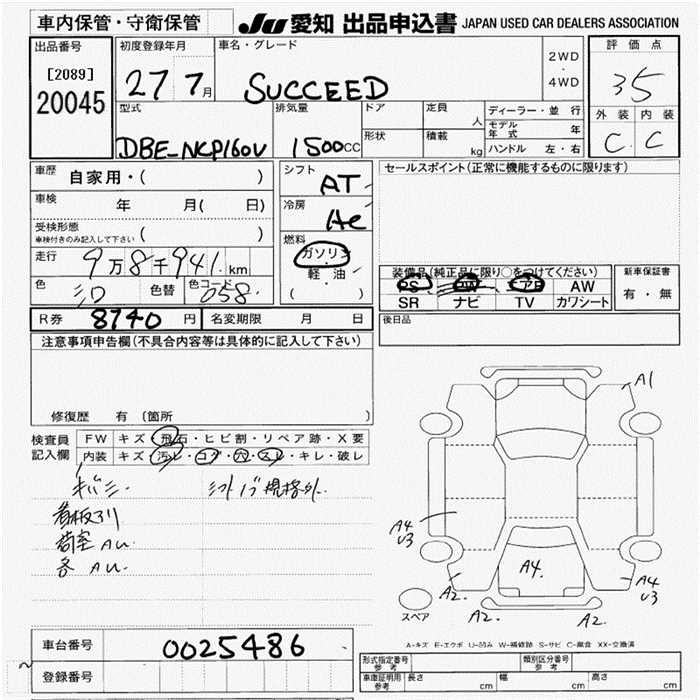 車内保管・守衛保管
JU 愛知 出品申込書 JAPAN USED CAR DEALERS ASSOCIATION
出品番号
[2089]
20045
初度登録年月
27 7月
車名・グレード
SUCCEED
2WD
・
4WD
評価点
3.5
外装 内装
C C
型式
DBE-NCP160V
排気量
1500CC
ドア
形状
定員
人
積載
kg
ディーラー・並行
モデル年式 年
ハンドル 左・右
車歴 自家用・( )
車検 年 月( 日)
受検形態
車検付きのみ記入して下さい ( )
走行 9万8千941km
色 シロ 色替 色コード 058
シフト AT
冷房 Ac
燃料
ガソリン
・
軽油
( )
セールスポイント(正常に機能するものに限ります)
装備品(純正品に限り○をつけてください)
PS PW エアB AW
SR ナビ TV カワシート
新車保証書
有・無
後日品
R券 8740円 名変期限 月 日
注意事項申告欄(不具合内容等は具体的に記入して下さい)
修復歴 有 〔箇所 〕
検査員記入欄
FW キズ・飛石・ヒビ割・リペア跡・X要
内装 キズ・汚レ・コゲ・穴・スレ・キレ・破レ
キバミ シフトノブ規格外
看板ヌリ
荷室AU
各AU
A1
A4
U3
A4
A4
U3
A2 A2 A2
スペア
A-キズ E-エクボ U-凹み W-補修跡 S-サビ C-腐食 XX-交換済
車台番号 0025486
登録番号
形式指定番号
参考
類別区分番号
参考
車庫証明用
参考
長さ cm 幅 cm 高さ cm